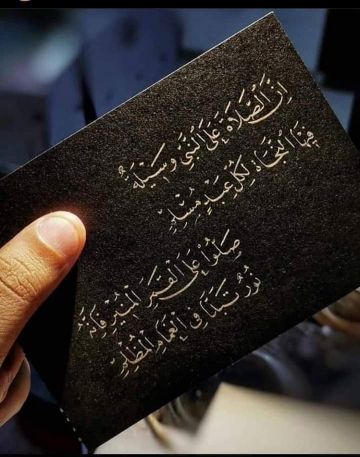 إنَّ الصَّلَاةَ عَلَى النَّبِيِّ وَسِيْلَةٌ
فِيْهَا النَّجَاةُ لِكُلِّ عَبْدٍ مُسْلِمِ
صَلُّوا عَلَى القَمَرِ المُنِيْرِ فَإِنَّهُ
نُورٌ تَبَدَّا فِي الغَمَامِ المُظْلِمِ